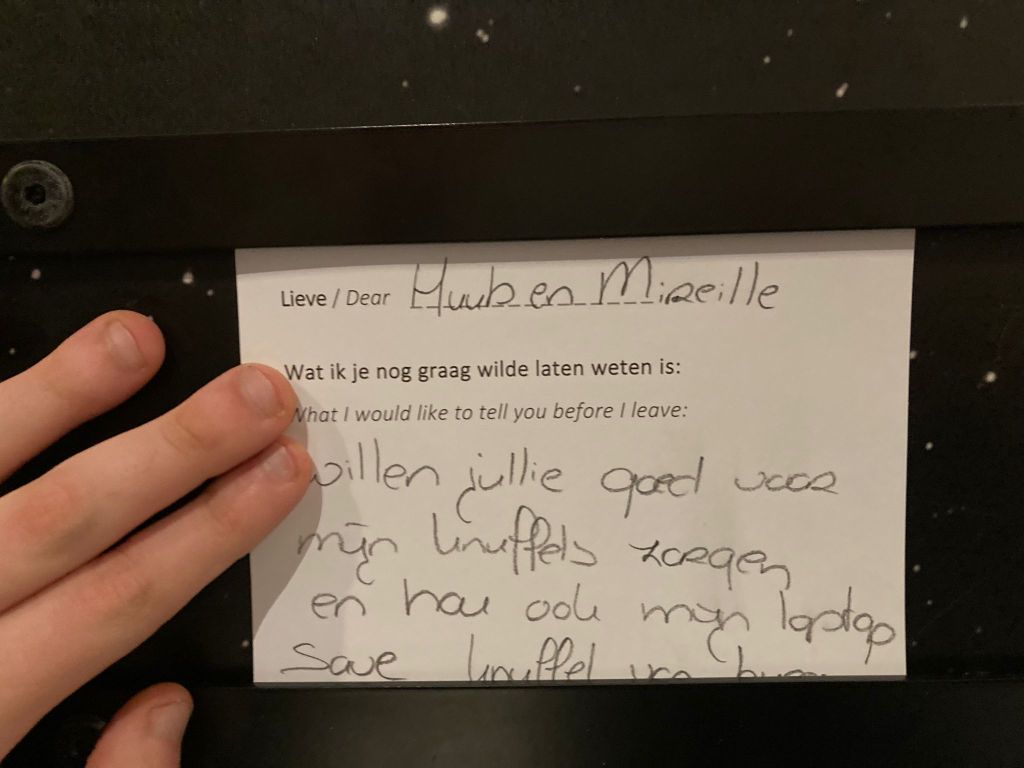 Lieve / Dear Huub en Mireille
Wat ik je nog graag wilde laten weten is:
What I would like to tell you before I leave:
willen jullie goed voor
mijn knuffels zorgen
en hou ook mijn laptop
Save knuffel van